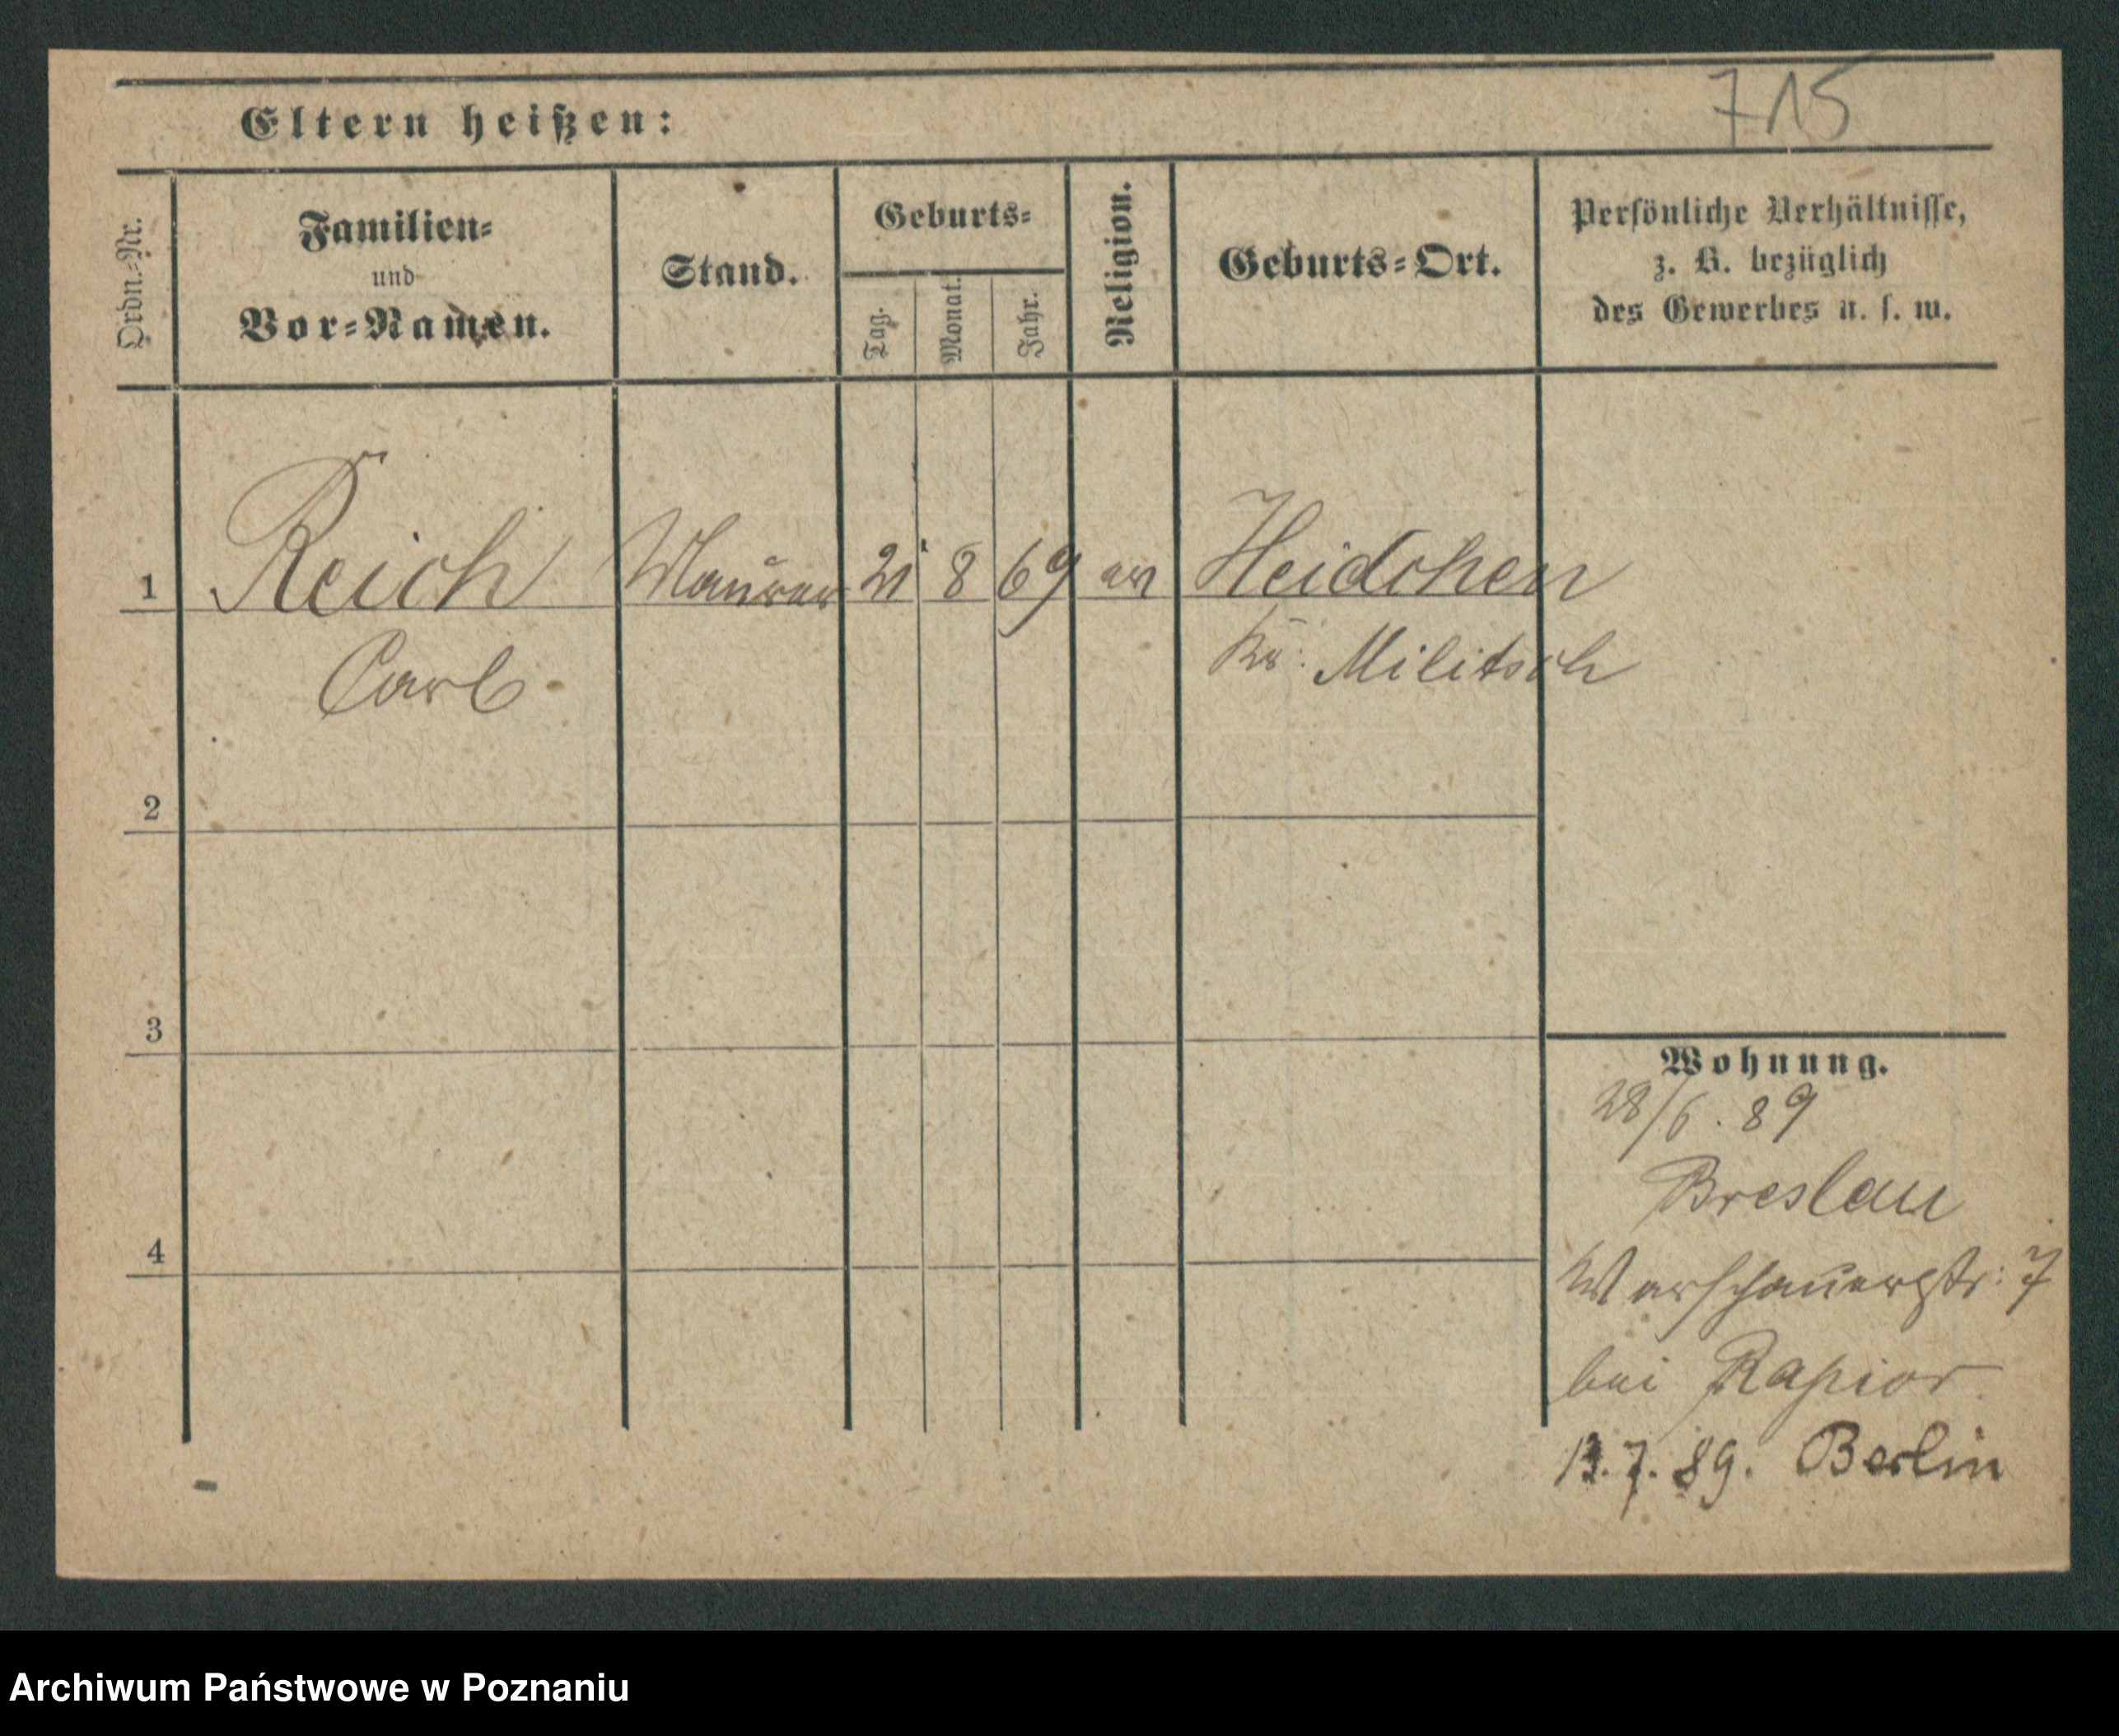 715
Eltern heißen:
Ordn.-Nr.
Familien-
und
Vor-Namen.
Stand.
Geburts-
Tag.
Monat.
Jahr.
Religion.
Geburts-Ort.
Persönliche Verhältnisse,
z. B. bezüglich
des Gewerbes u. s. w.
1 Reich Maurer 21 8 69 ev Heidchen
Carl Kr: Militsch
2
3
4
Wohnung.
28/6. 89
Breslau
Warschauerstr: 7
bei Rapior
13.7.89. Berlin
Archiwum Państwowe w Poznaniu